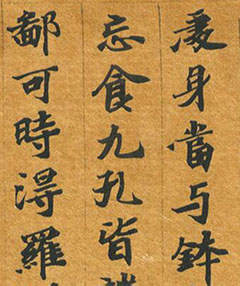 身當与鉢
忘食九孔皆
鄙可時淂羅